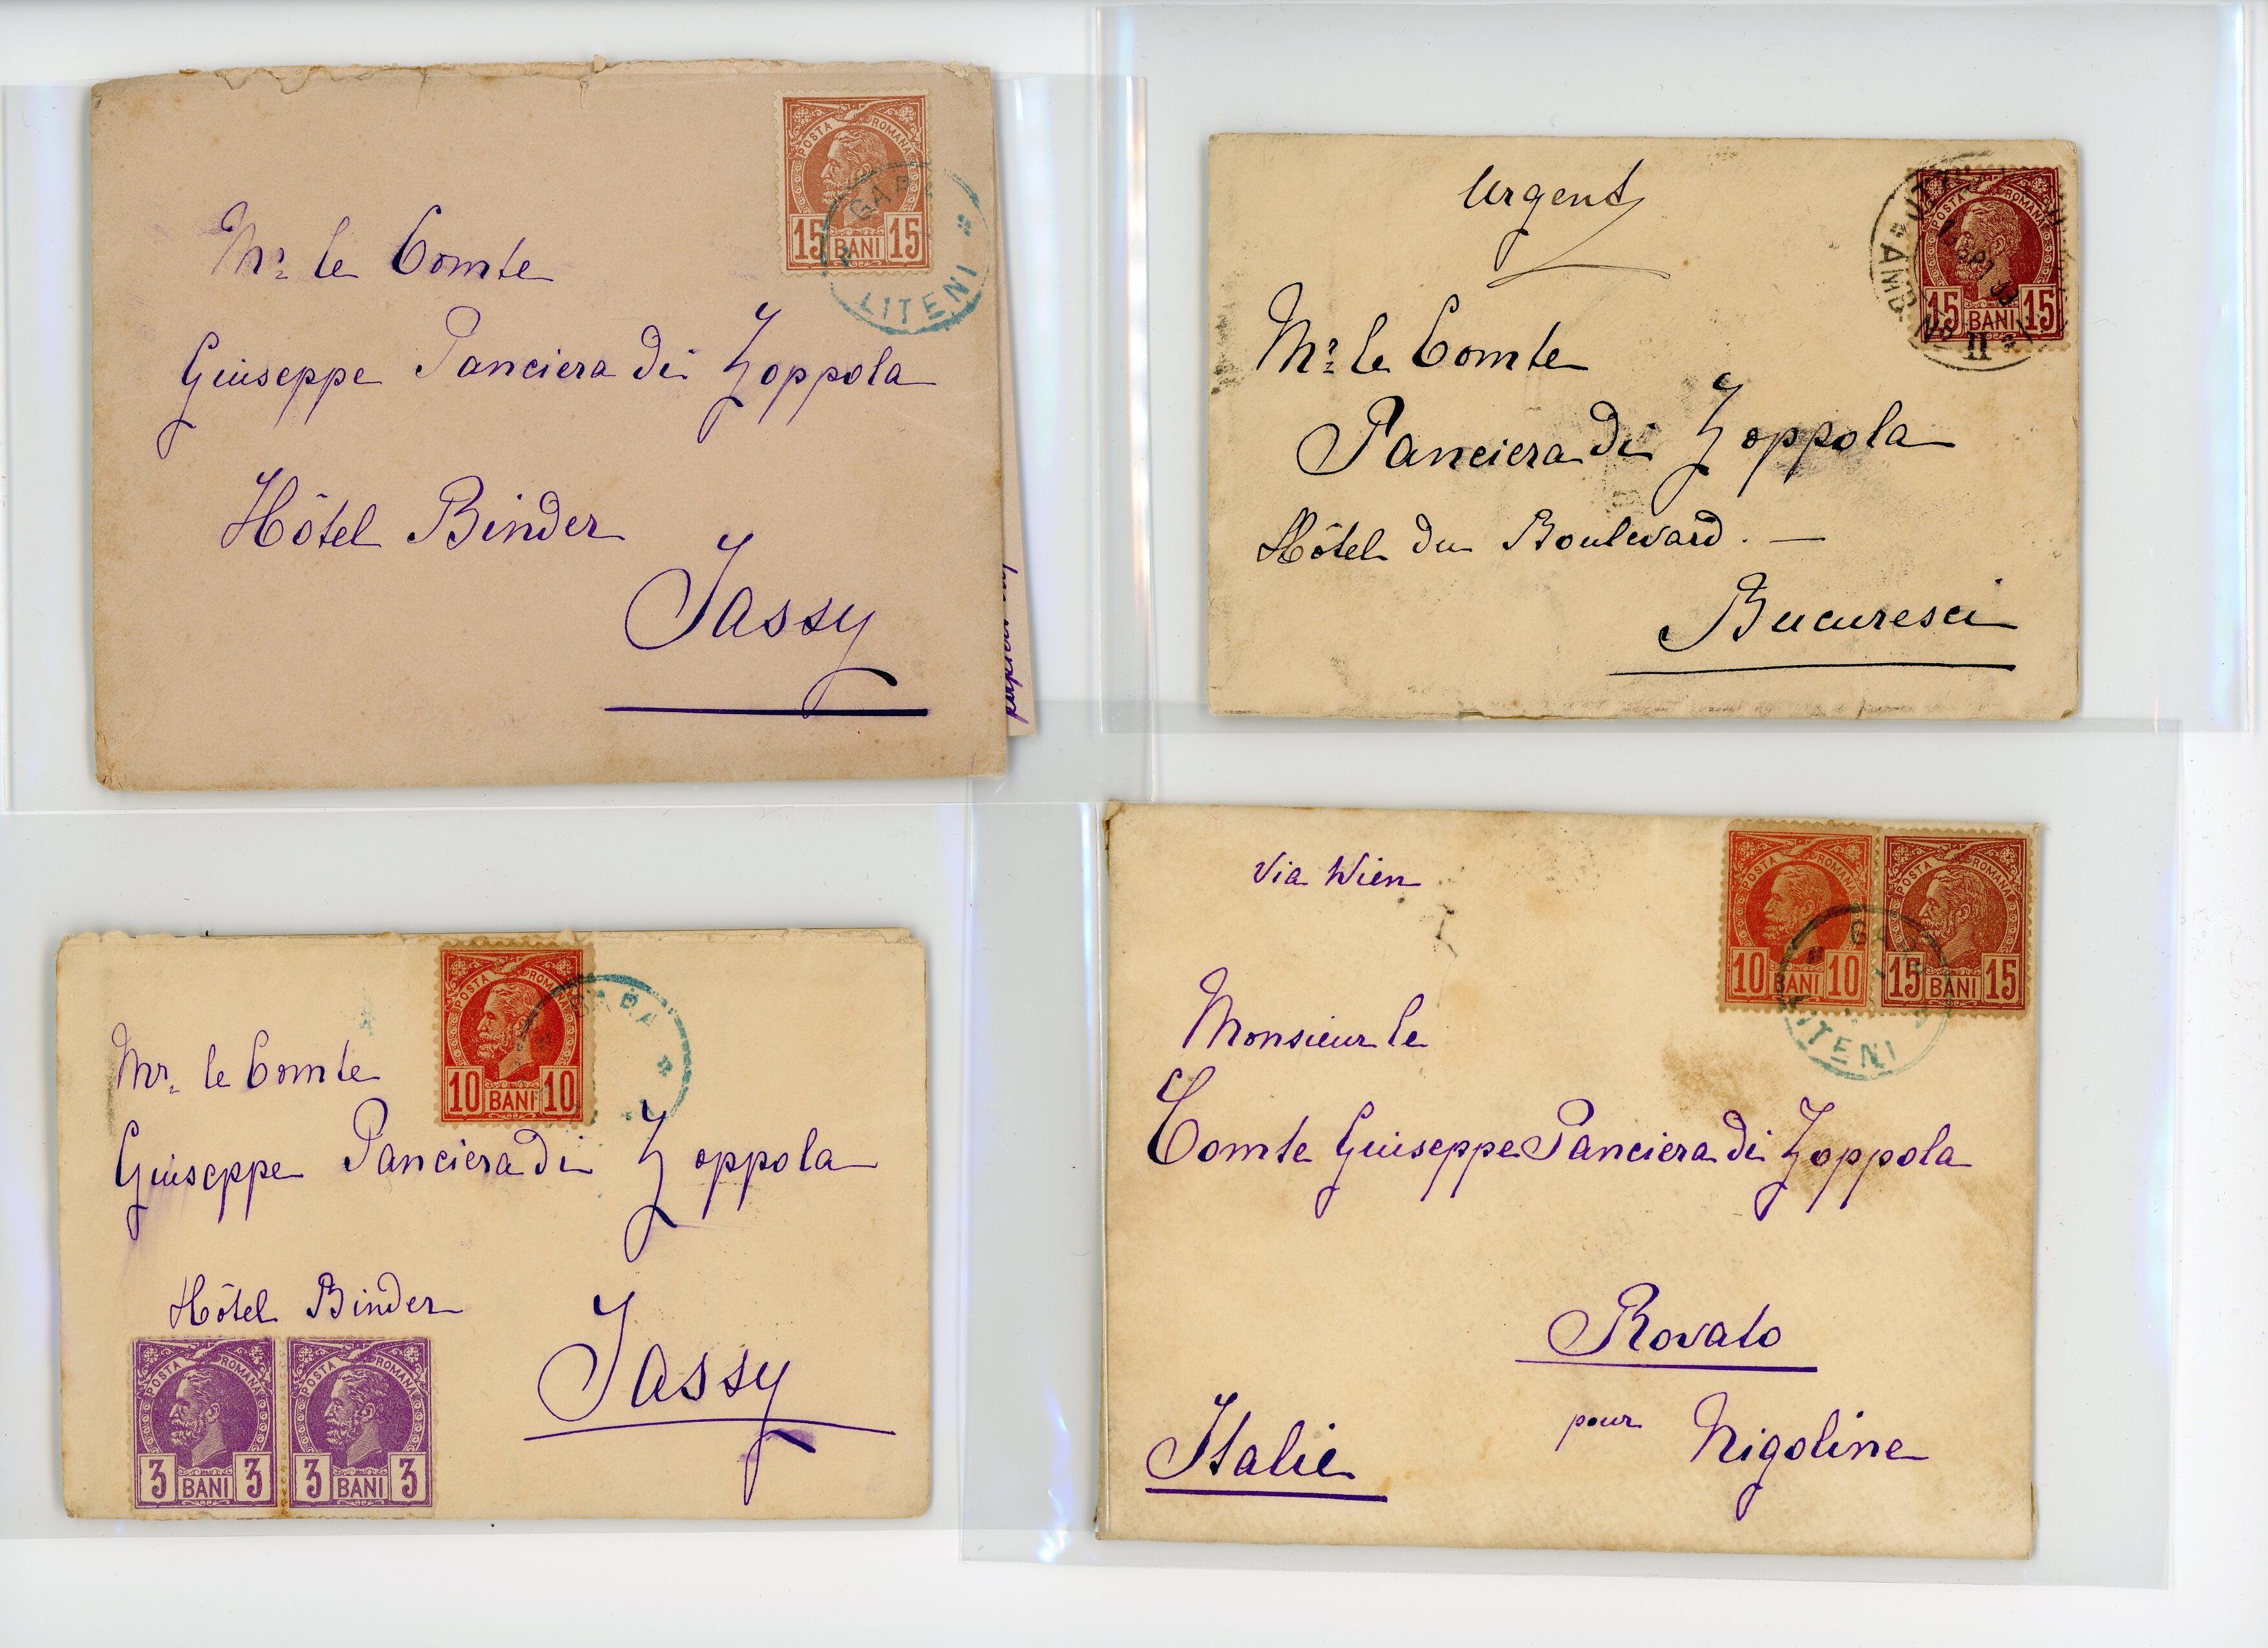 POSTA ROMANA
15 BANI 15
GARA
LITENI
Mr. le Comte
Giuseppe Panciera di Zoppola
Hôtel Binder
Jassy
Urgent
POSTA ROMANA
15 BANI 15
AMB
No II
Mr. le Comte
Panciera di Zoppola
Hôtel du Boulevard. —
Bucuresci
POSTA ROMANA
10 BANI 10
GARA
Mr. le Comte
Giuseppe Panciera di Zoppola
Hôtel Binder
Jassy
POSTA ROMANA
3 BANI 3
POSTA ROMANA
3 BANI 3
Via Wien
POSTA ROMANA
10 BANI 10
POSTA ROMANA
15 BANI 15
LITENI
Monsieur le
Comte Giuseppe Panciera di Zoppola
Rovato
pour Nigoline
Italie